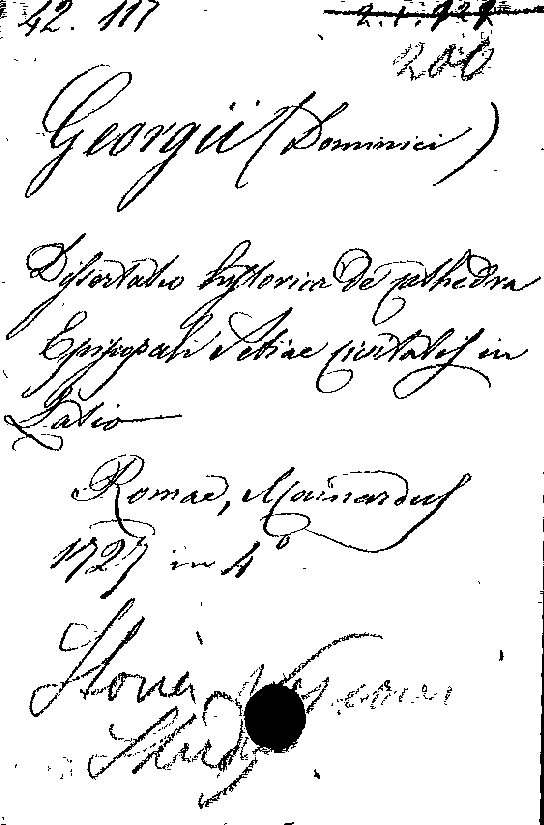 42. 117
2.1.929
200
Georgii (Dominici)
Dissertatio hystorica de cathedra
Episcopali Setiae civitatis in
Latio
Romae, Mainardus
1727 in 4º
Storia